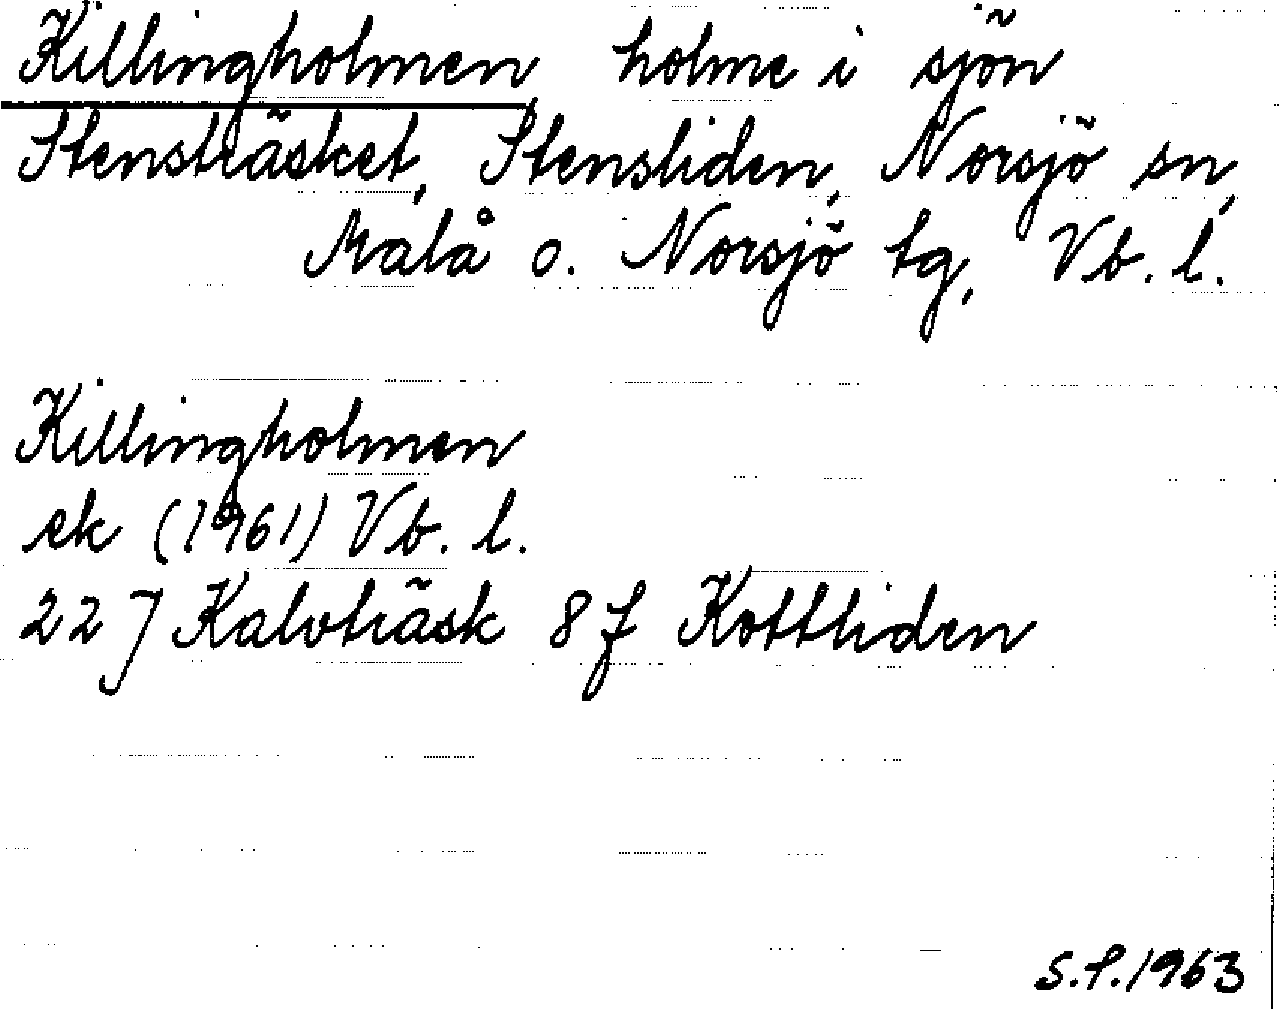 Killingholmen holme i sjön
Stensträsket, Stensliden, Norsjö sn,
Malå o. Norsjö tg, Vb. l.
Killingholmen
ek (1961) Vb. l.
22 J Kalvträsk 8 f Kottliden
S.P. 1963